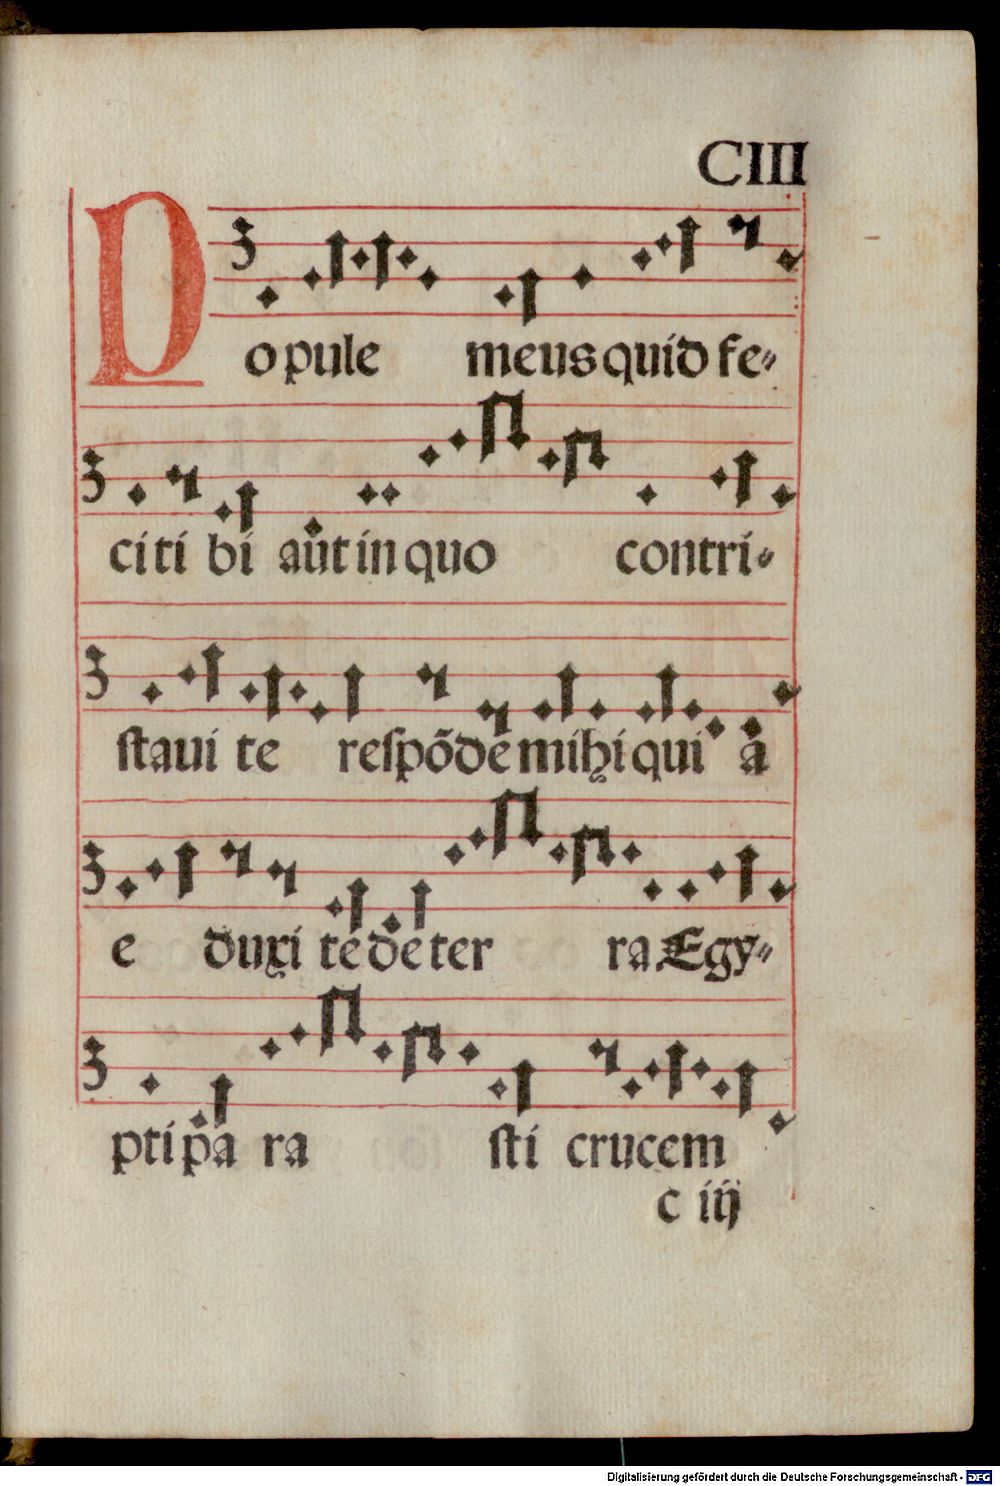 CIII
Popule meus quid fe-
ci ti bi aūt in quo contri-
staui te respōde mihi qui a
e duxi te de ter ra Egy-
pti pa ra sti crucem
c iij
Digitalisierung gefördert durch die Deutsche Forschungsgemeinschaft - DFG